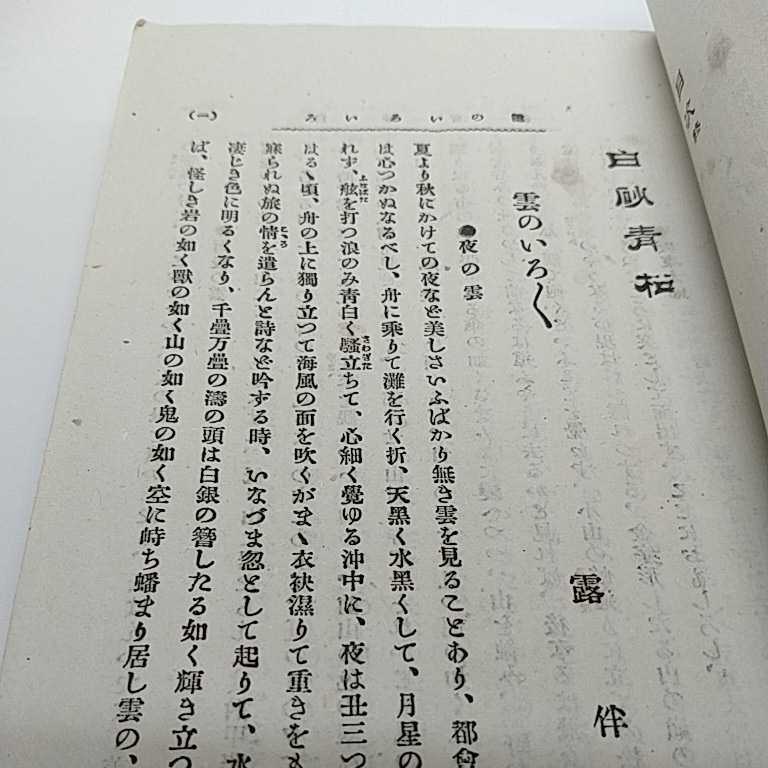 白砂青松
露伴
雲のいろ〳〵
●夜の雲
夏より秋にかけての夜など美しさいふばかり無き雲を見ることあり、都會
は心つかぬなるべし、舟に乘りて灘を行く折、天黑く水黑くして、月星の
れず、舷を打つ浪のみ靑白く騷立ちて、心細く覺ゆる沖中に、夜は丑三つ
はるゝ頃、舟の上に獨り立つて海風の面を吹くがまゝ衣袂濕りて重きをも
寐られぬ旅の情を遣らんと詩など吟ずる時、いなづま忽として起りて、水
凄じき色に明るくなり、千疊万疊の濤の頭は白銀の簪したる如く輝き立つ
ば、怪しき岩の如く獸の如く山の如く鬼の如く空に峙ち蟠まり居し雲の、
雲のいろいろ
(一)